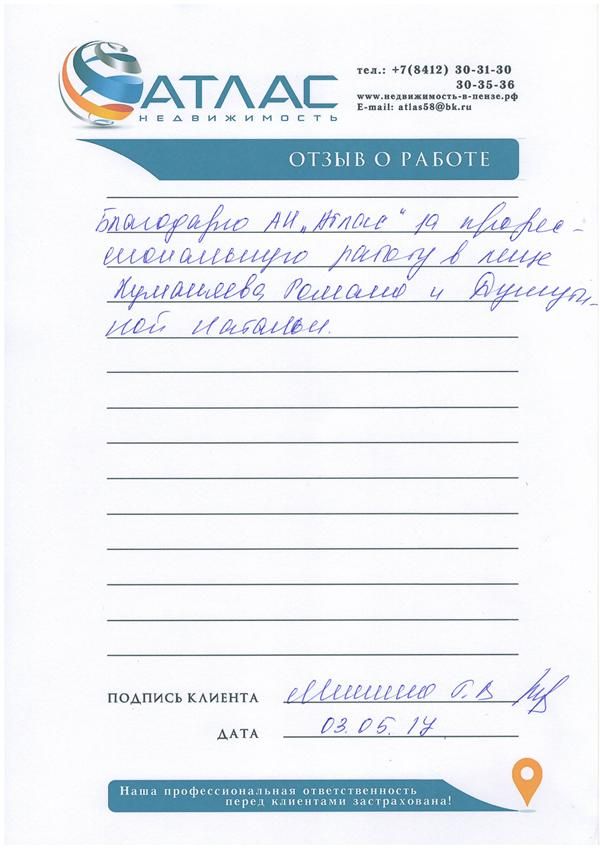 АТЛАС
НЕДВИЖИМОСТЬ
тел.: +7(8412) 30-31-30
30-35-36
www.недвижимость-в-пензе.рф
E-mail: atlas58@bk.ru
ОТЗЫВ О РАБОТЕ
Благодарю АН „Атлас" за профес-
сиональную работу в лице
Романа и
ной Натальи.
ПОДПИСЬ КЛИЕНТА Г.В
ДАТА 03.05.17
Наша профессиональная ответственность
перед клиентами застрахована!